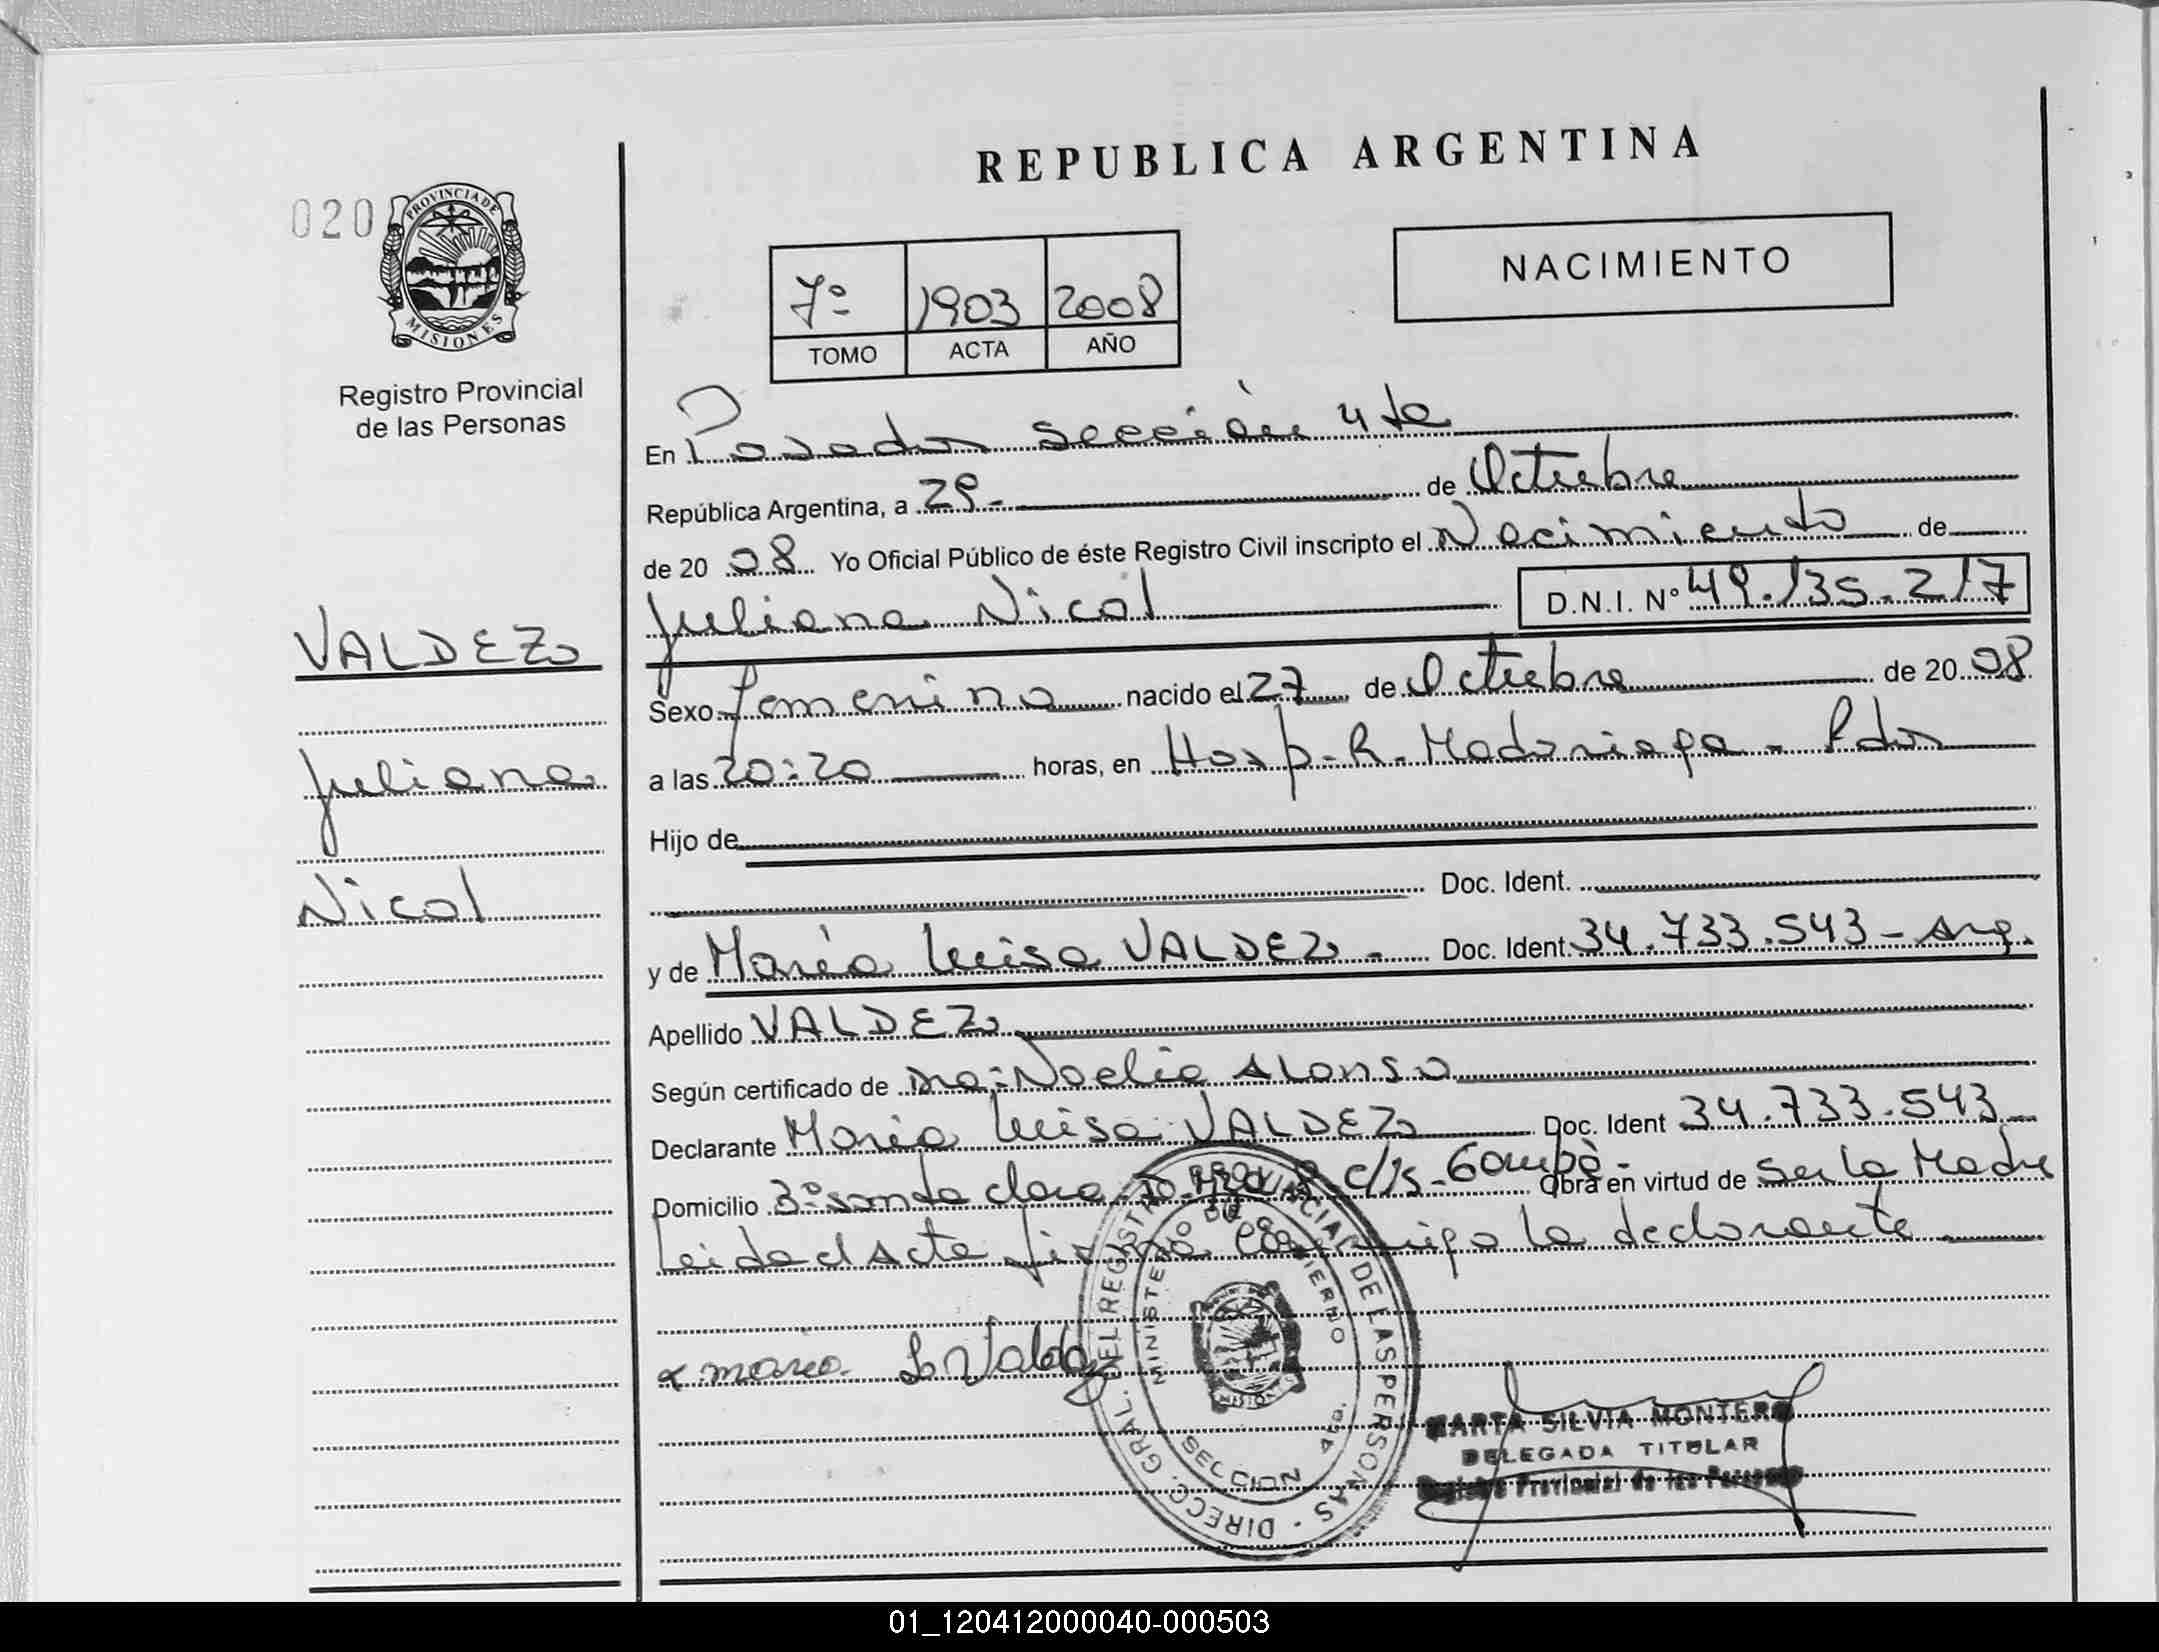 REPUBLICA ARGENTINA
020
PROVINCIA DE
MISIONES
Registro Provincial
de las Personas
7º 1903 2008
TOMO ACTA AÑO
NACIMIENTO
En Posadas sección 4ta
República Argentina, a 29 - de Octubre
de 20 08 Yo Oficial Público de éste Registro Civil inscripto el Nacimiento de
Juliana Nicol D.N.I. Nº 49.135.217
VALDEZ
Juliana
Nicol
Sexo femenino nacido el 27 de Octubre de 20 08
a las 20:20 horas, en Hosp. R. Madariaga - Pdas
Hijo de
Doc. Ident.
y de María Luisa VALDEZ - Doc. Ident. 34.733.543 - Arg.
Apellido VALDEZ
Según certificado de Dra: Noelia Alonso
Declarante María Luisa VALDEZ Doc. Ident 34.733.543
Domicilio 3º santa clara c/s. Garupá - Obra en virtud de Ser la Madre
Leida el Acta firma conmigo la declarante
x maria L Valdez
DIRECC. GRAL. DEL REGISTRO PROVINCIAL DE LAS PERSONAS
MINISTERIO DE GOBIERNO
SECCION 4ta.
MARTA SILVIA MONTERO
DELEGADA TITULAR
Registro Provincial de las Personas
01_120412000040-000503